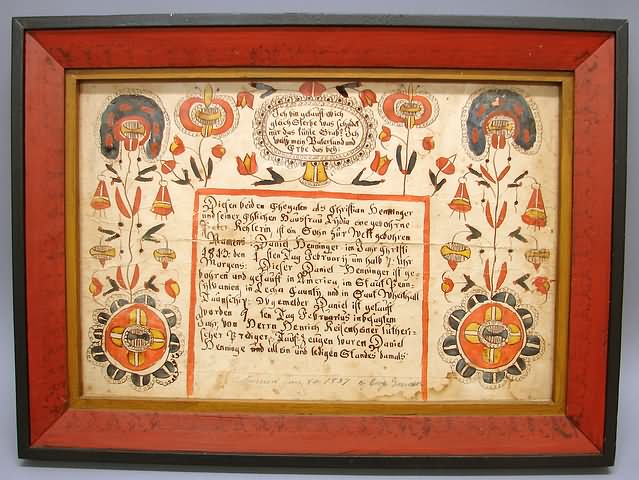 Ich bin getaufft Ob ich
gleich Sterbe was schadet
mir das kühle Grab? Ich
weiß mein Vaterland und
Erbe das bey:
Diesen beiden Ehegatten als Christian Henninger
und seiner Ehlichen Hausfrau Lydia eine gebohrne
Kehlerin, ist ein Sohn zur Welt gebohren
Namens: Daniel Henninger im Jahr Christi
den Tag Februarij um halb 7. Uhr
Morgens: Dieser Daniel Henninger ist ge-
bohren und getaufft in America im Staat Penn-
sylvanien in Lecha Caunty und in Saut Wheithall
Taunschip: Obgemelder Daniel ist getaufft
worden den Tag Februarius in besagtem
Jahr, von Herrn Henrich luther-
ischer Prediger, Tauff-Zeugen waren Daniel
Henninge und ledigen Standes damals:
1837